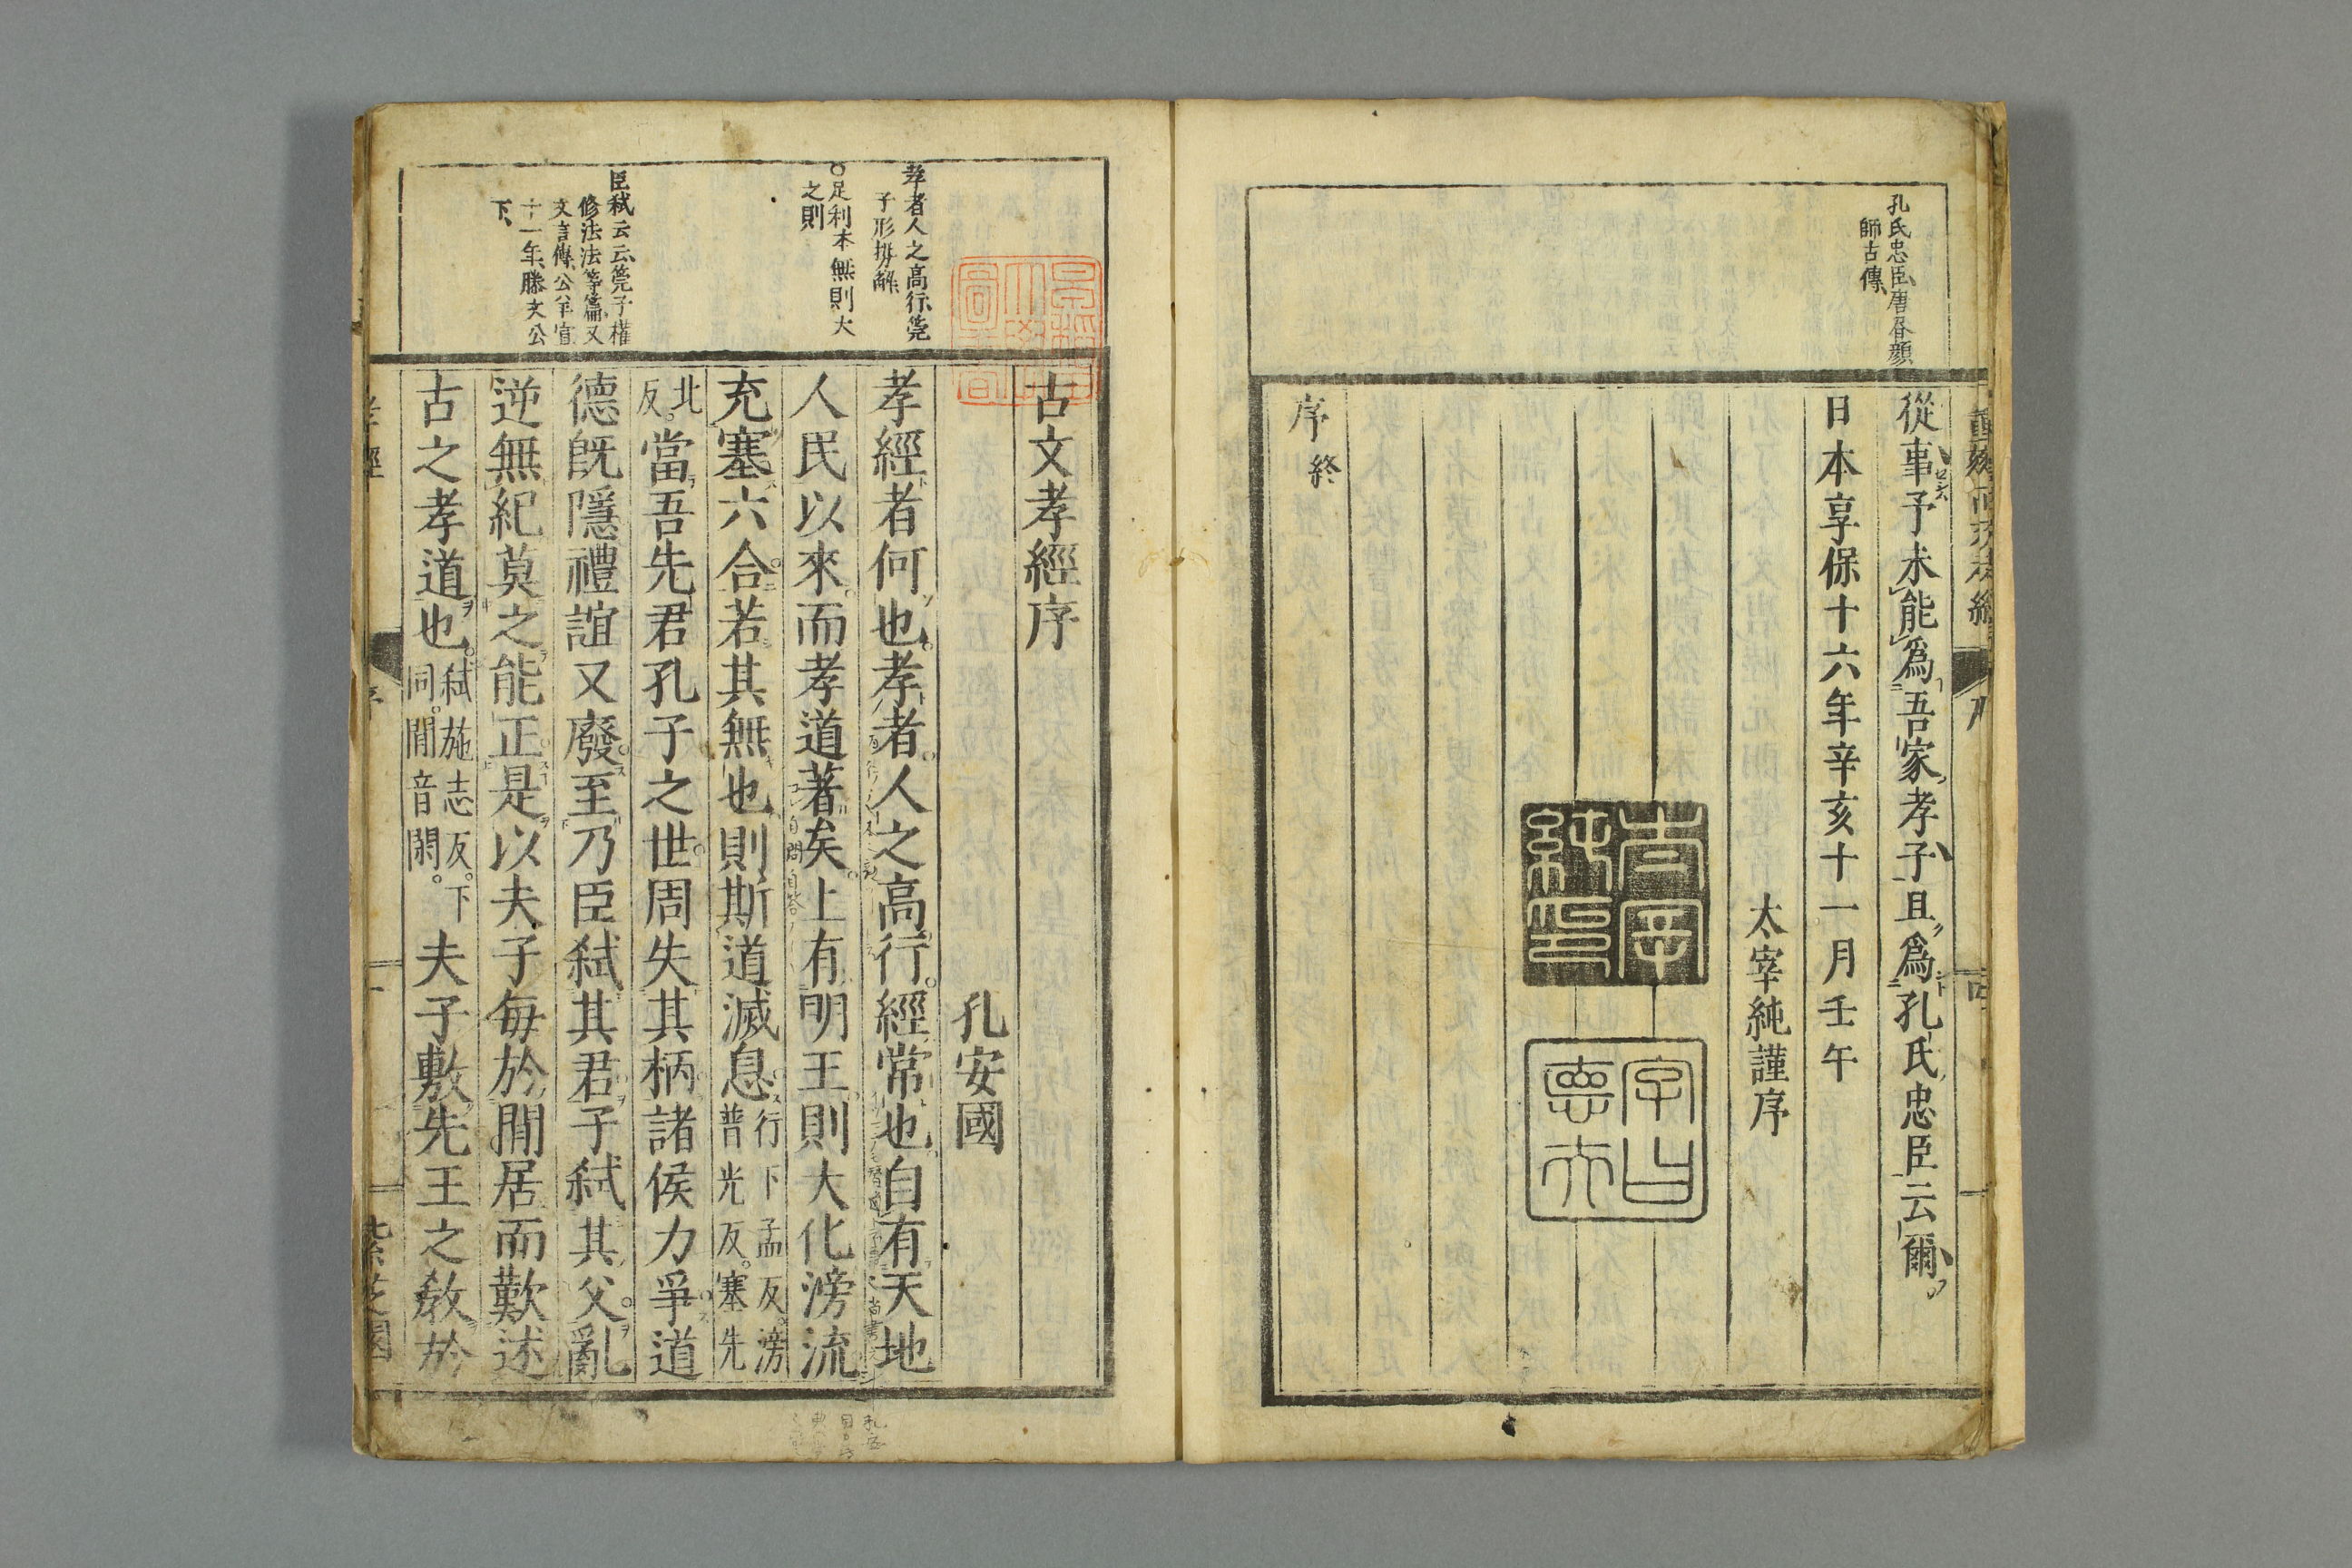 孔氏忠臣唐晉顔
師古傳
從事予未能爲吾家孝子且爲孔氏忠臣云爾
日本享保十六年辛亥十一月壬午
太宰純謹序
太宰純印
序終
孝者人之高行筦
子形埶解
○足利本無則大
之則
臣弑云云筦子權
修法法等篇又
文言傳公羊宣
十一年滕文公
下
古文孝經序
孔安國
孝經者何也孝者人之高行經常也自有天地
人民以來而孝道著矣上有明王則大化滂流
充塞六合若其無也則斯道滅息行下孟反滂普光反塞先
北反當吾先君孔子之世周失其柄諸侯力爭道
德既隱禮誼又廢至乃臣弑其君子弑其父亂
逆無紀莫之能正是以夫子每於閒居而歎述
古之孝道也弑施志反下同閒音閑夫子敷先王之教於